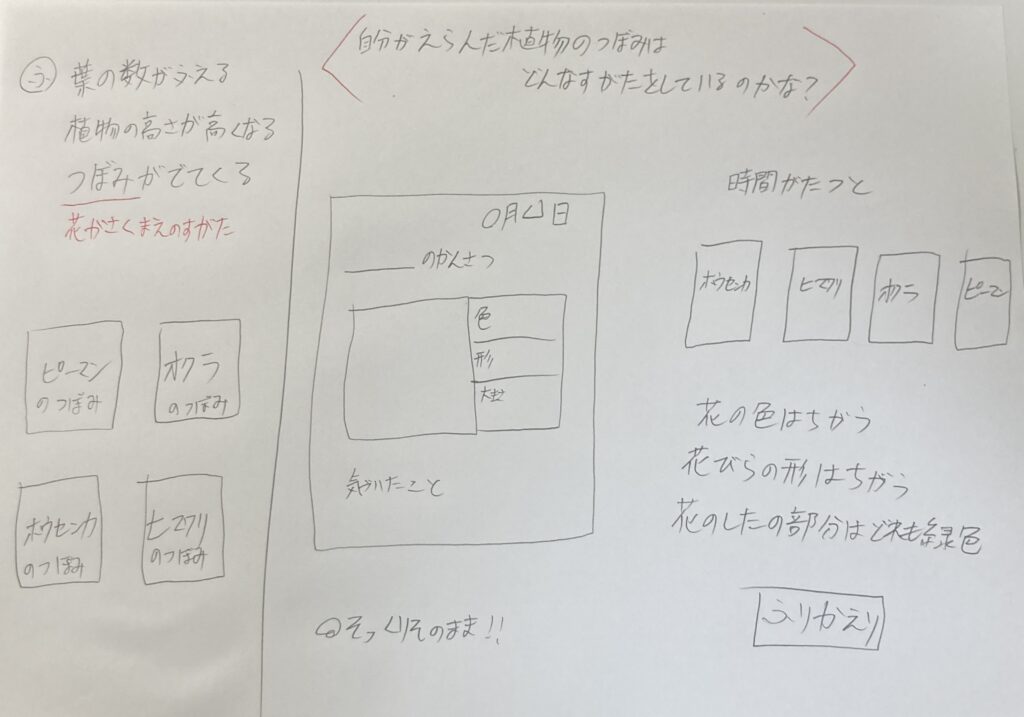 ふ 葉の数がふえる
植物の高さが高くなる
つぼみがでてくる
花がさくまえのすがた
ピーマン
のつぼみ
オクラ
のつぼみ
ホウセンカ
のつぼみ
ヒマワリ
のつぼみ
自分がえらんだ植物のつぼみは
どんなすがたをしているのかな?
〇月△日
のかんさつ
色
形
大きさ
気づいたこと
そっくりそのまま!!
時間がたつと
ホウセンカ
ヒマワリ
オクラ
ピーマン
花の色はちがう
花びらの形はちがう
花のしたの部分はどれも緑色
ふりかえり